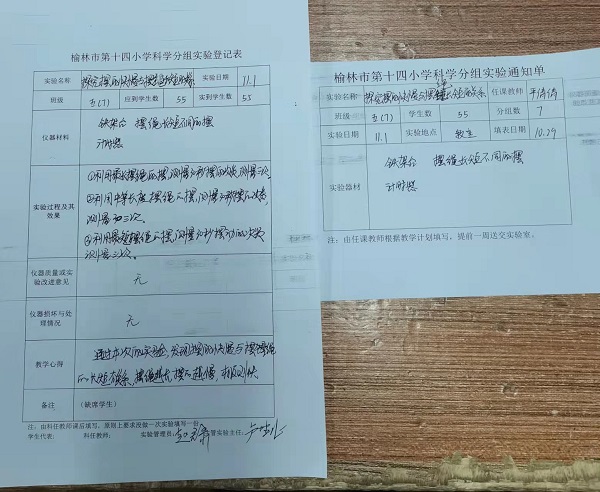 榆林市第十四小学科学分组实验登记表
实验名称 探究摆的快慢与摆绳长短的关系 实验日期 11.1
班级 五(7) 应到学生数 55 实到学生数 55
仪器材料
铁架台 摆绳长短不同的摆
计时器
实验过程及其效果
①利用最长摆绳的摆,测量 秒摆 次数,测量三次
②利用中等长度摆绳的摆,测量 秒摆 次数,
测量 三次。
③利用最短摆绳的摆,测量 秒摆动的次数
测量三次。
仪器质量或实验改进意见 无
仪器损坏与处理情况 无
教学心得
通过本次的实验,发现摆的快慢与摆绳
的长短有关系,摆绳越长摆的越慢,
备注 (缺席学生)
注:由科任教师课后填写,原则上要求没做一次实验填写一份
学生代表: 科任教师: 实验管理员: 管实验主任:
榆林市第十四小学科学分组实验通知单
实验名称 探究摆的快慢与摆绳长短的关系 任课教师
班级 五(7) 学生数 55 分组数 7
实验日期 11.1 实验地点 教室 填表日期 10.29
实验器材
铁架台 摆绳长短不同的摆
计时器
注:由任课教师根据教学计划填写,提前一周送交实验室。